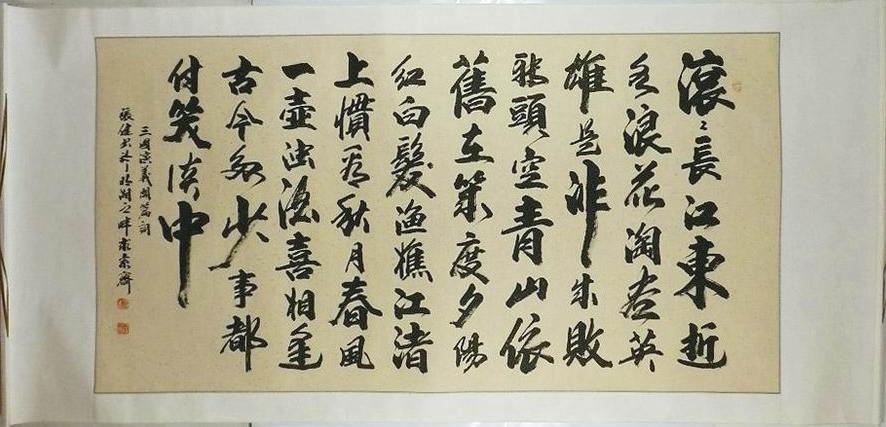 滾〻長江東逝
水浪花淘盡英
雄是非成敗
轉頭空青山依
舊在幾度夕陽
紅白髮漁樵江渚
上慣看秋月春風
一壺濁酒喜相逢
古今多少事都
付笑談中
三國演義開篇詞
張健書於明湖之畔